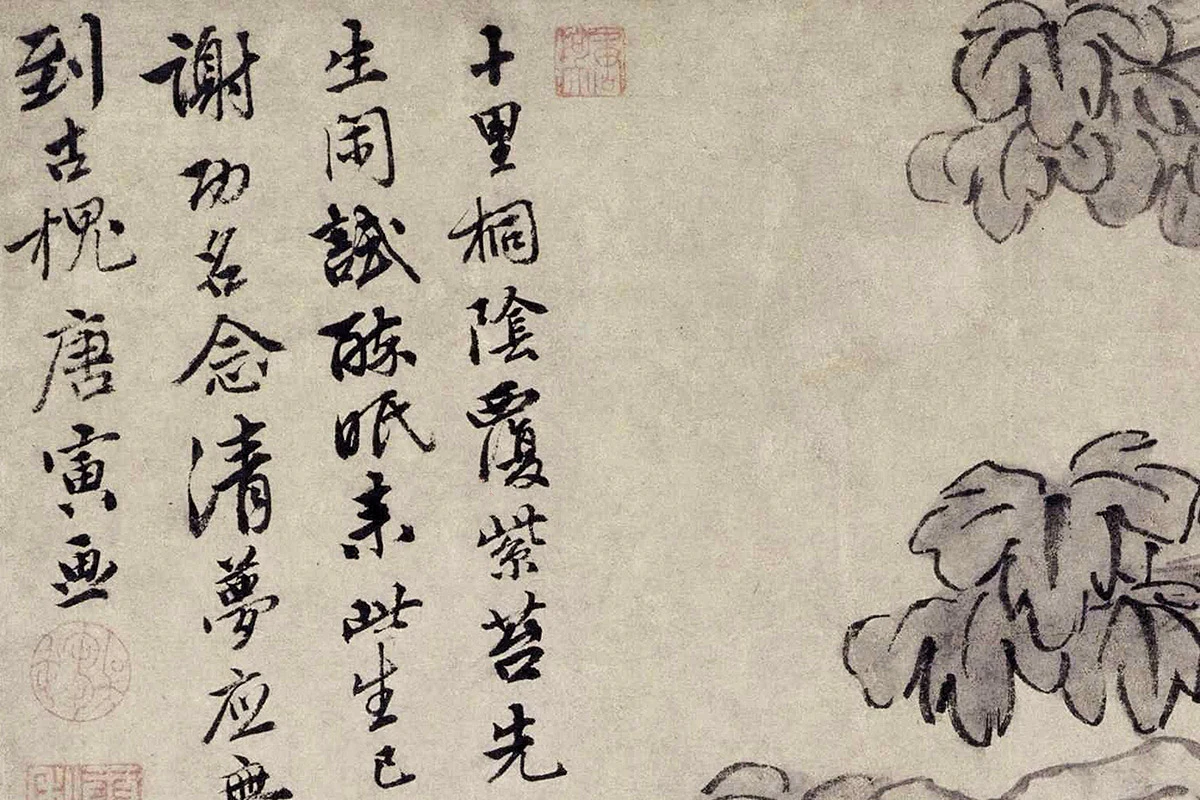 十里桐陰覆紫苔先
生閑試醉眠来此生已
謝功名念清夢應無
到古槐唐寅画